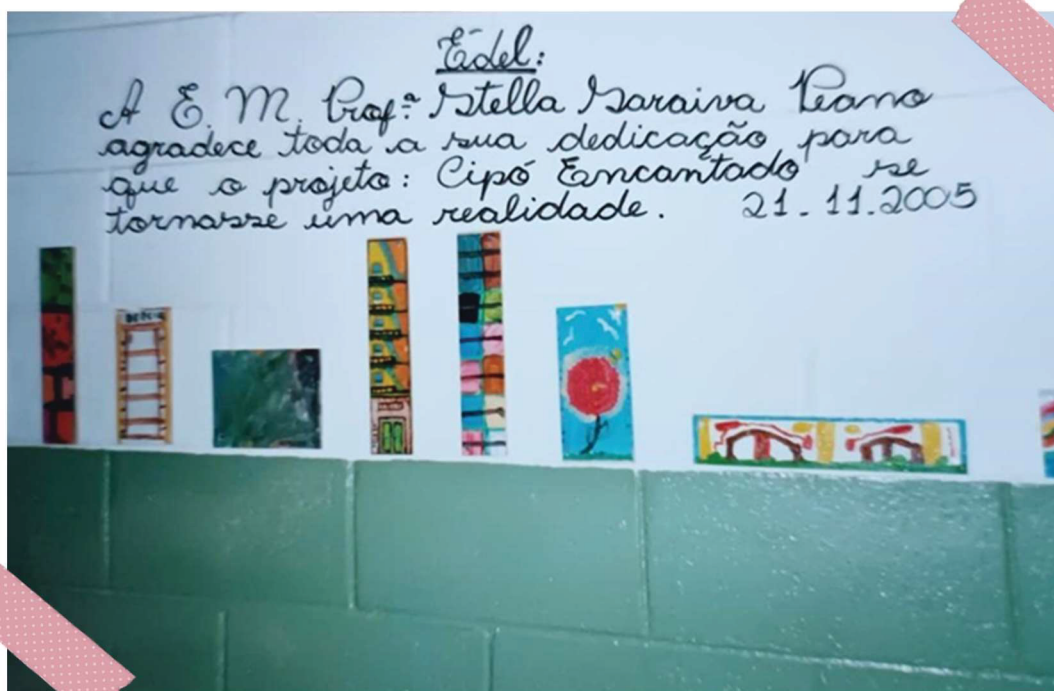 Edel:
A E. M. Profª Stella Saraiva Peano
agradece toda a sua dedicação para
que o projeto: Cipó Encantado se
tornasse uma realidade. 21.11.2005